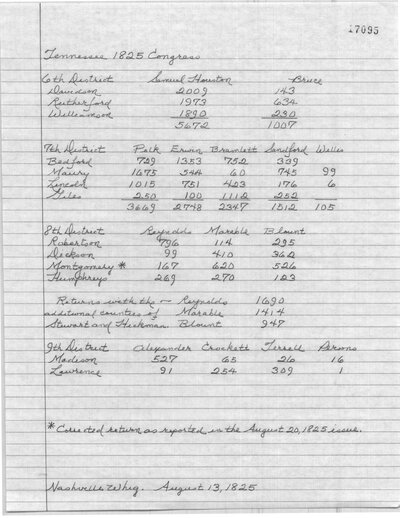 17095
Tennessee 1825 Congress
6th District Samuel Houston Bruce
Davidson 2009 143
Rutherford 1973 634
Williamson 1890 230
5672 1007
7th District Polk Erwin Bramlett Sandford Willis
Bedford 729 1353 752 339
Maury 1675 544 60 745 99
Lincoln 1015 751 423 176 6
Giles 250 100 1112 252
3669 2748 2347 1512 105
8th District Reynolds Marable Blount
Robertson 796 114 295
Dickson 99 410 362
Montgomery * 167 620 526
Humphreys 269 270 123
Returns with the - Reynolds 1690
additional counties of Marable 1414
Stewart and Hickman. Blount 947
9th District Alexander Crockett Terrell Persons
Madison 527 65 26 16
Lawrence 91 254 309 1
* Corrected return as reported in the August 20, 1825 issue.
Nashville Whig. August 13, 1825